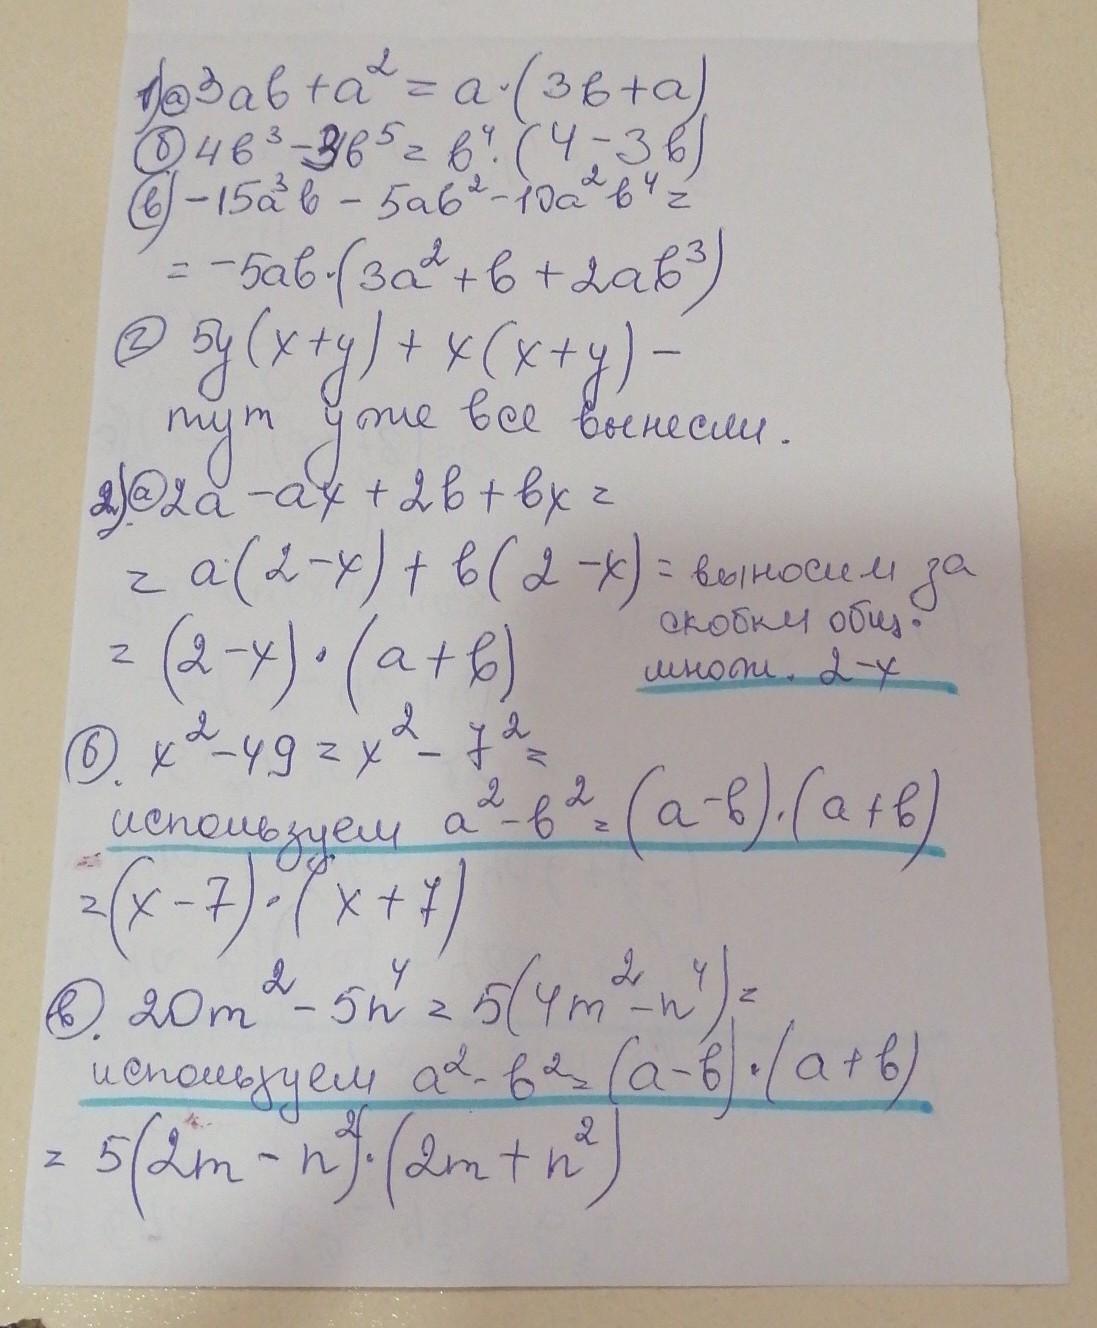 1) а) 3ab + a² = a·(3b + a)
б) 4b³ - 3b⁵ = b⁴·(4 - 3b)
в) -15a³b - 5ab² - 10a²b⁴ =
= -5ab·(3a² + b + 2ab³)
г) 5y(x+y) + x(x+y) -
тут уже все вынесли.
2) а) 2a - ax + 2b + bx =
= a·(2-x) + b(2-x) = выносим за
скобки общ.
= (2-x)·(a+b) множ. 2-x
б). x² - 49 = x² - 7² =
используем a² - b² = (a-b)·(a+b)
= (x-7)·(x+7)
в). 20m² - 5n⁴ = 5(4m² - n⁴) =
используем a² - b² = (a-b)·(a+b)
= 5(2m - n²)·(2m + n²)